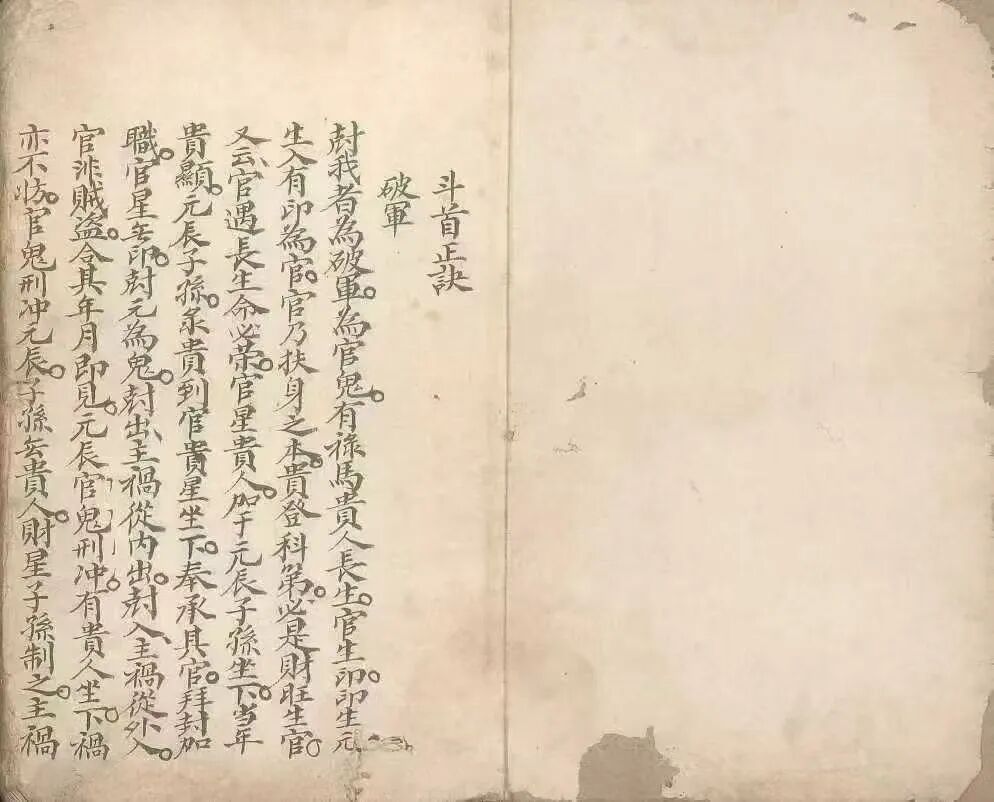 斗首正訣
破軍
尅我者為破軍。為官鬼。有祿馬貴人長生。官生印。印生元
生入有印為官。官乃扶身之本。貴登科第。必是財旺生官。
又云、官遇長生命必荣。官星貴人加于元辰子孫坐下。當年
貴顯。元辰子孫。添貴到官貴星坐下。奉承其官。拜封加
職。官星無印。尅元為鬼。尅出、主禍從内出。尅入、主禍從外入。
官非賊盗。合其年月即見。元辰官鬼刑冲。有貴人坐下。禍
亦不妨。官鬼刑冲元辰。子孫無貴人。財星子孫制之。主禍